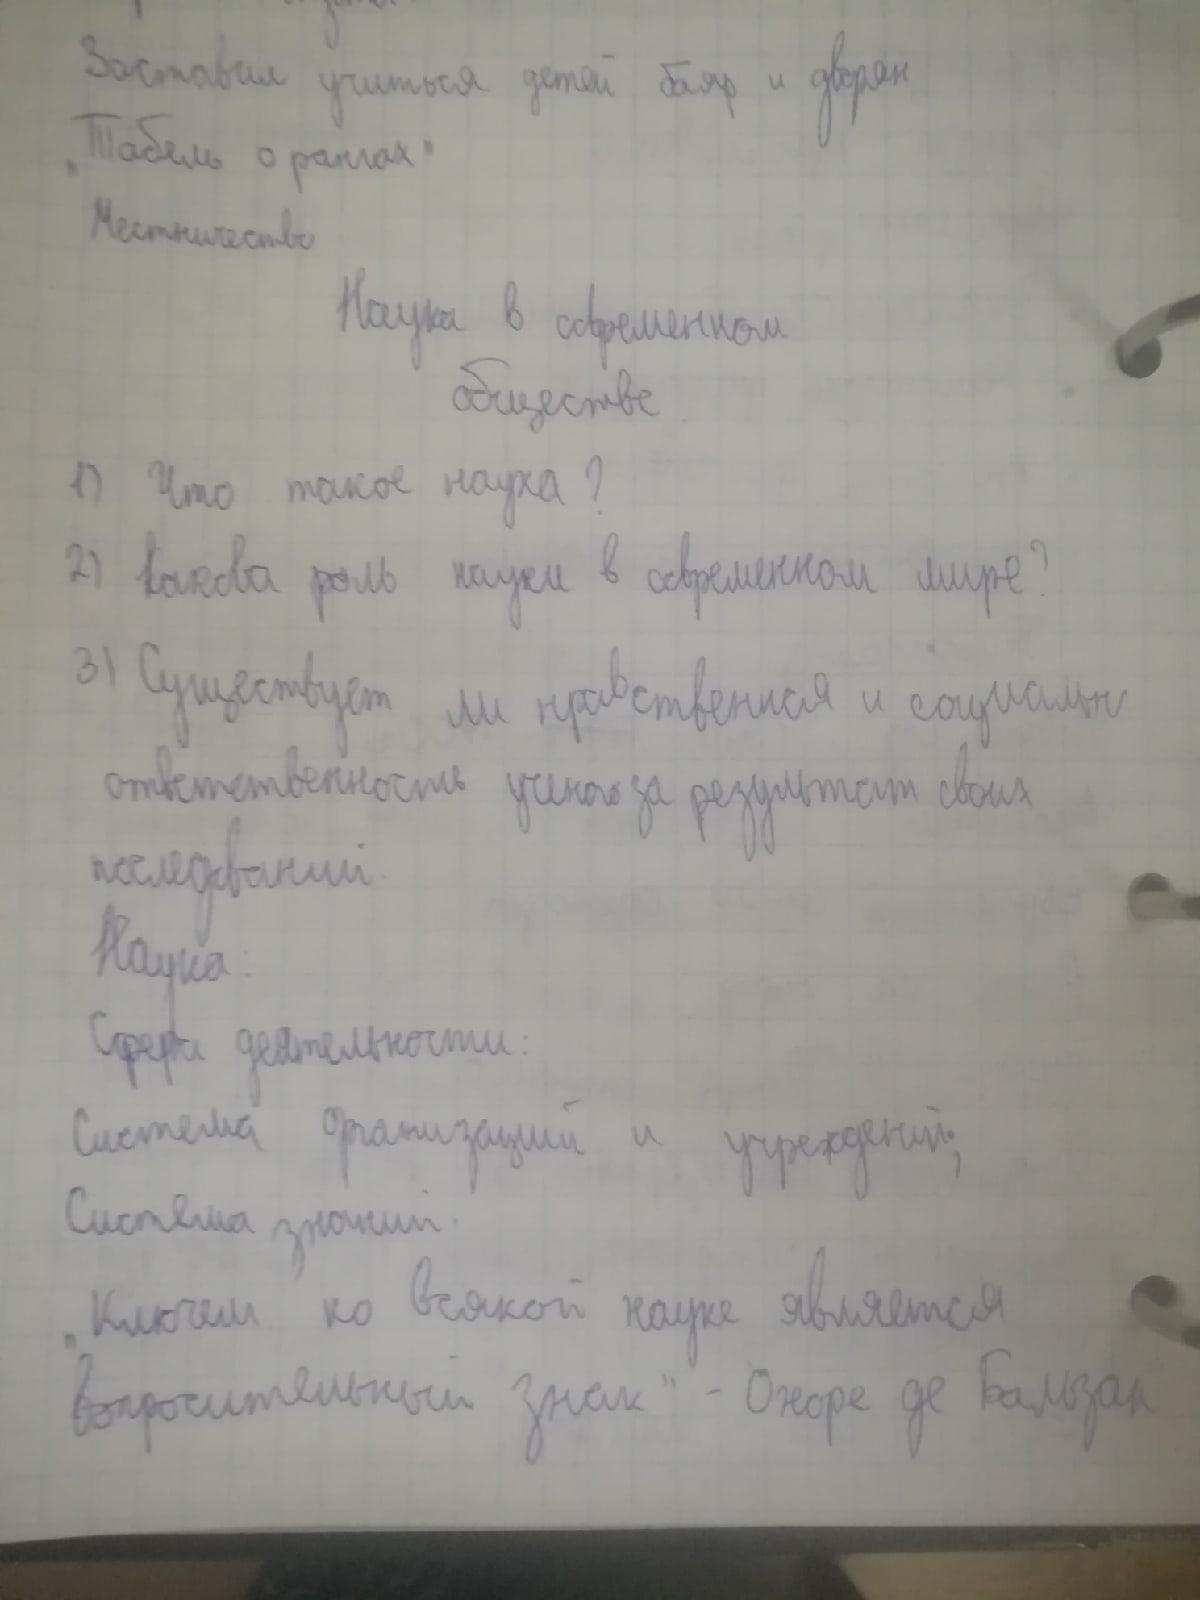 Заставил учиться детей бояр и дворян
„Табель о рангах"
Местничество
Наука в современном
обществе
1) Что такое наука?
2) Какова роль науки в современном мире?
3) Существует ли нравственная и социальн
ответственность ученого за результат своих
последований.
Наука:
Сфера деятельности:
Система организаций и учреждений;
Система знаний.
„Ключем ко всякой науке является
вопросительный знак" - Оноре де Бальзак